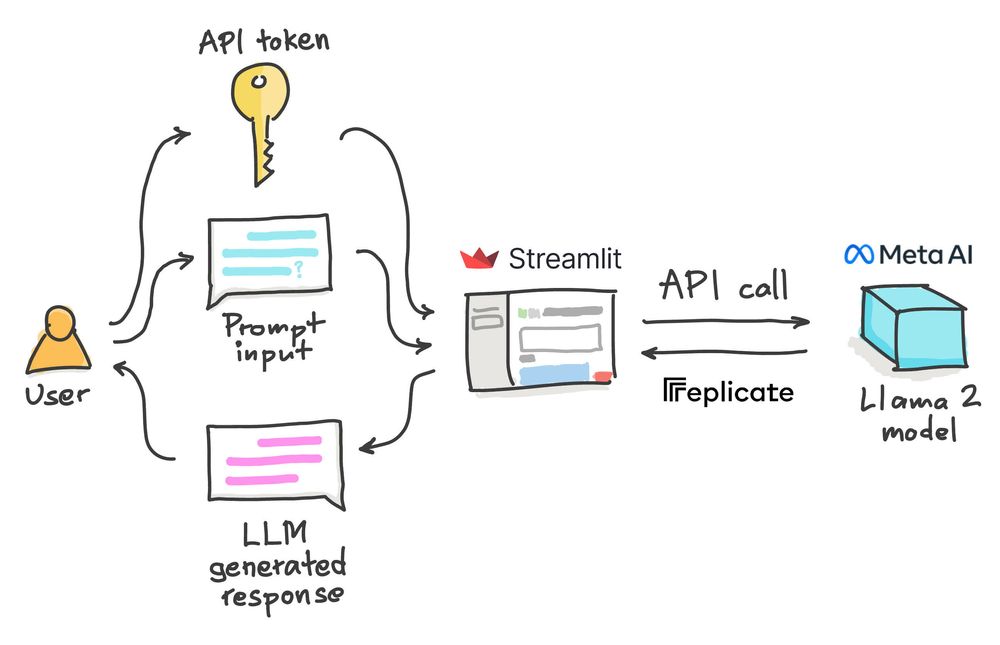 API token
Prompt
input
?
User
LLM
generated
response
Streamlit
API call
replicate
Meta AI
Llama 2
model